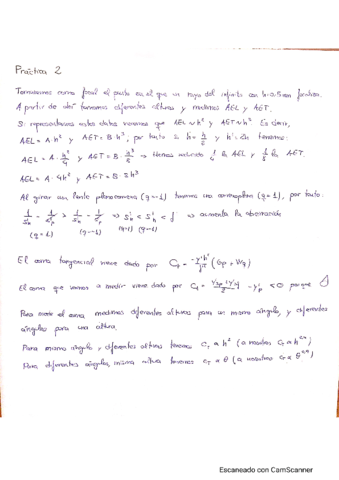 Práctica 2
Tomaremos como focal el punto en el que un rayo del infinito con h=0.5mm focaliza.
A partir de ahí tomamos diferentes alturas y medimos AEL y AET.
Si representamos estos datos veremos que AEL ~ h² y AET ~ h³. Es decir,
AEL = A·h² y AET = B·h³, por tanto si h = h/2 y h' = 2h tenemos:
AEL = A·h²/4 y AET = B·h³/8 → Hemos reducido 1/4 la AEL y 1/8 la AET.
AEL = A·4h² y AET = B·8h³
Al girar un lente planoconvexa (q=-1) tenemos una convexoplana (q=1), por tanto:
(q=1) (q=-1) (q=1) (q=-1) → aumenta la aberración
El coma tangencial viene dado por
El coma que vamos a medir viene dado por <0 porque
Para medir el coma, medimos diferentes alturas para un mismo ángulo, y diferentes
ángulos para una altura.
Para mismo ángulo y diferentes alturas tenemos C_T ∝ h² (a nosotros C_T ∝ h
Para diferentes ángulos, misma altura tenemos C_T ∝ θ (a nosotros C_T ∝ θ
Escaneado con CamScanner